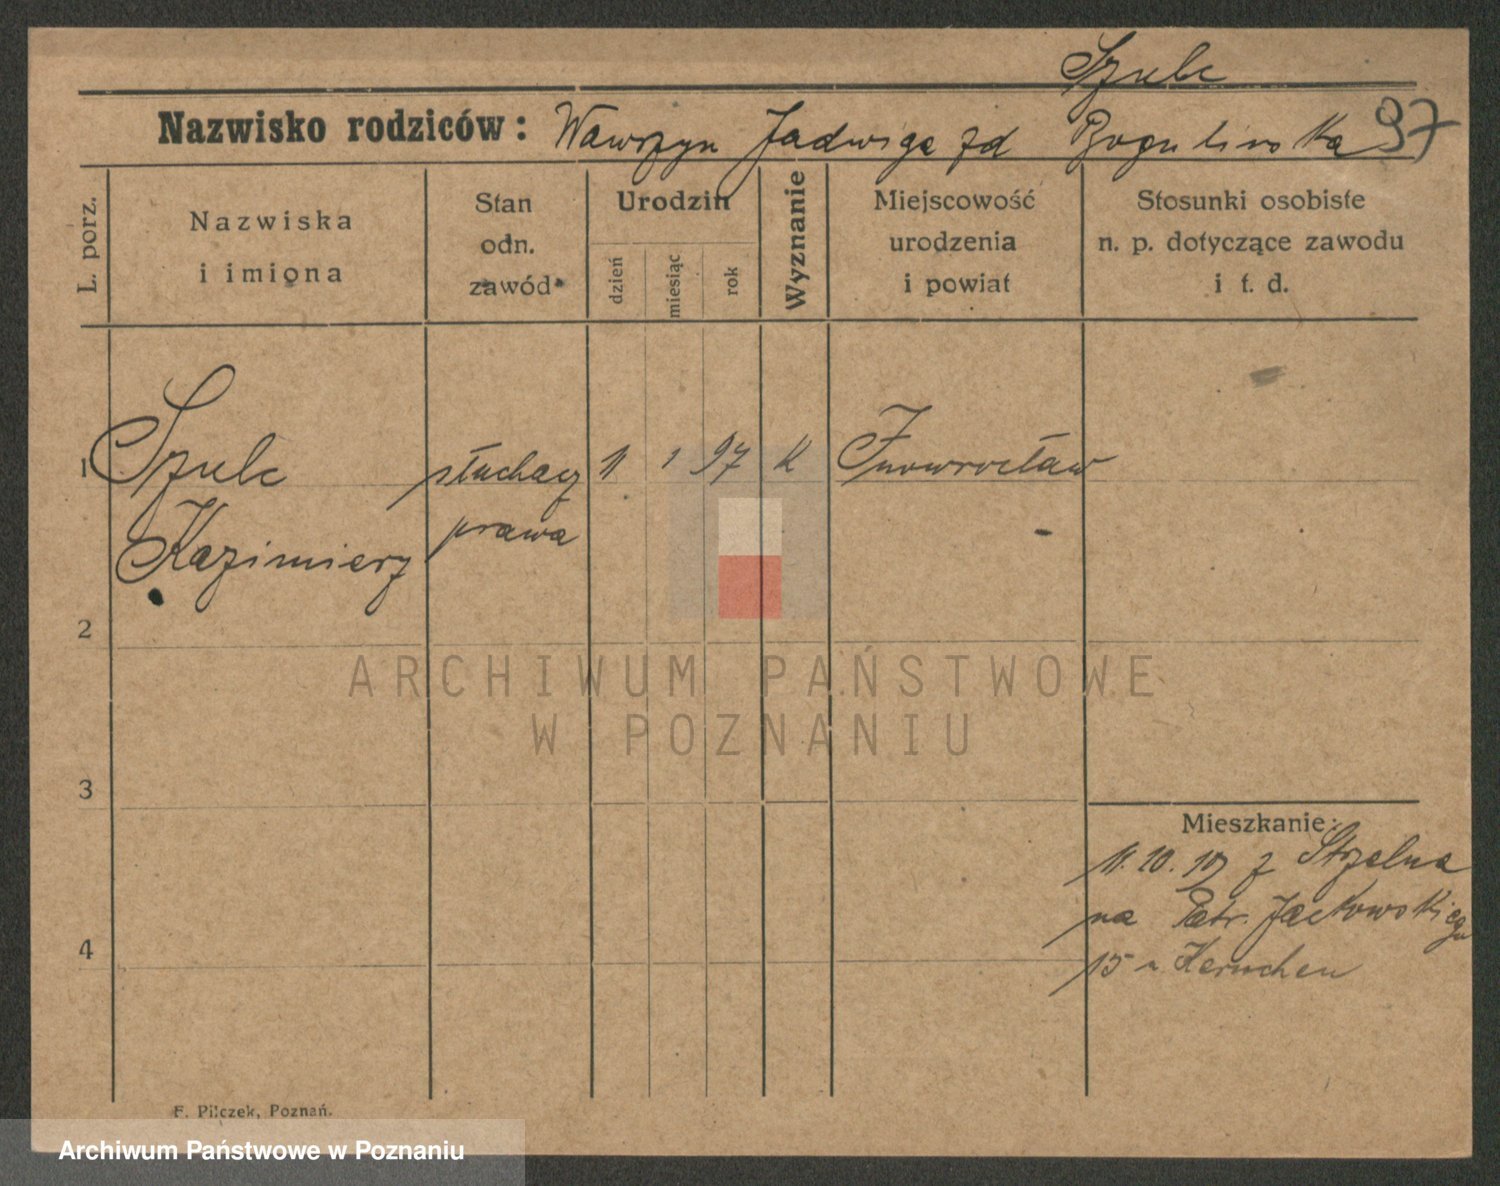 Szulc
Nazwisko rodziców: Wawrzyn Jadwiga zd Bogulinska 97
L. porz.
Nazwiska
i imiona
Stan
odn.
zawód
Urodzin
dzień
miesiąc
rok
Wyznanie
Miejscowość
urodzenia
i powiat
Stosunki osobiste
n. p. dotyczące zawodu
i t. d.
1 Szulc słuchacz 11 1 97 K Inowrocław
Kazimierz prawa
2
3
4
Mieszkanie:
11. 10. z Strzelna
na Patr. Jackowskiego
15
F. Pilczek, Poznań.
ARCHIWUM PAŃSTWOWE
W POZNANIU
Archiwum Państwowe w Poznaniu